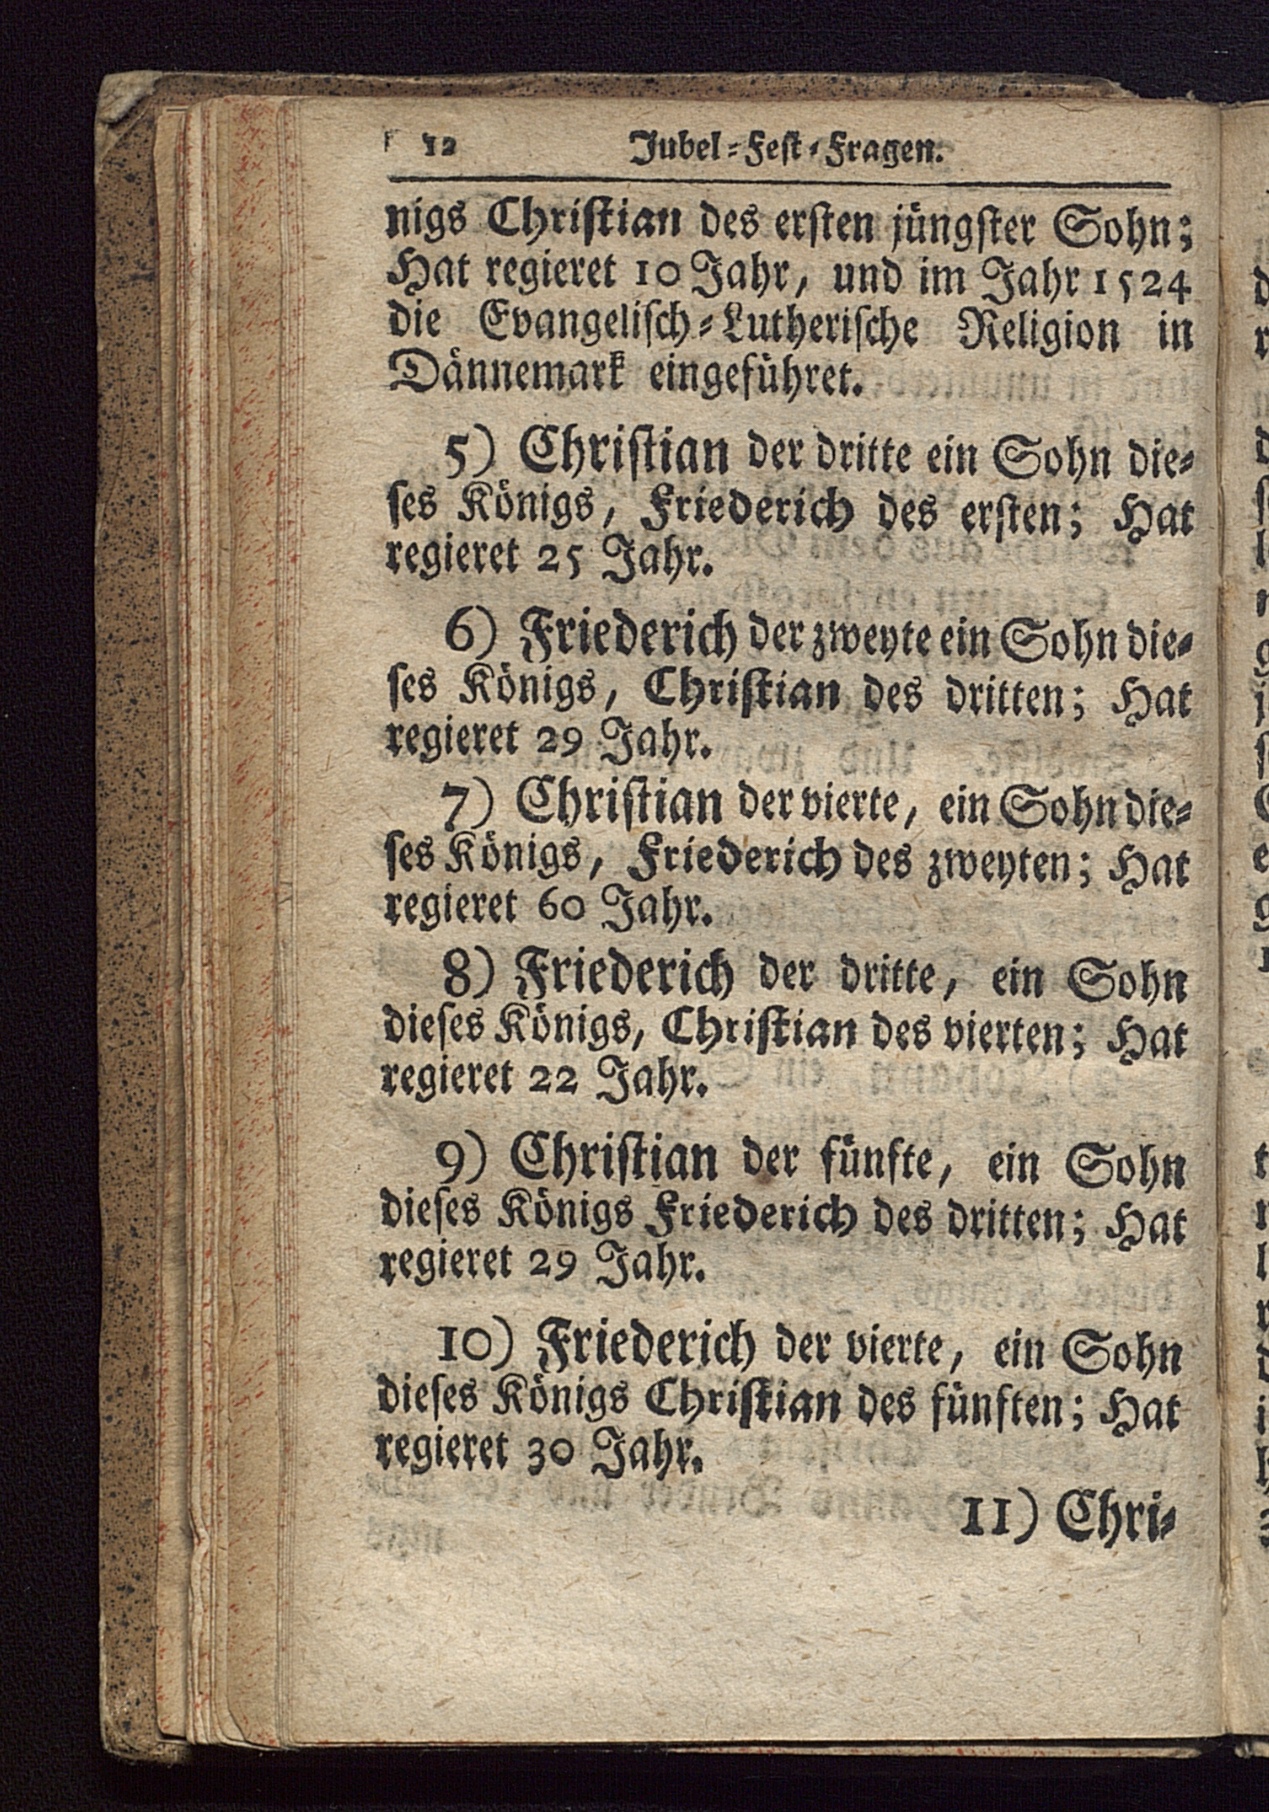 12 Jubel-Fest-Fragen.
nigs Christian des ersten jüngster Sohn;
Hat regieret 10 Jahr, und im Jahr 1524
die Evangelisch-Lutherische Religion in
Dännemark eingeführet.
5) Christian der dritte ein Sohn die-
ses Königs, Friederich des ersten; Hat
regieret 25 Jahr.
6) Friederich der zweyte ein Sohn die-
ses Königs, Christian des dritten; Hat
regieret 29 Jahr.
7) Christian der vierte, ein Sohn die-
ses Königs, Friederich des zweyten; Hat
regieret 60 Jahr.
8) Friederich der dritte, ein Sohn
dieses Königs, Christian des vierten; Hat
regieret 22 Jahr.
9) Christian der fünfte, ein Sohn
dieses Königs Friederich des dritten; Hat
regieret 29 Jahr.
10) Friederich der vierte, ein Sohn
dieses Königs Christian des fünften; Hat
regieret 30 Jahr.
11) Chri-